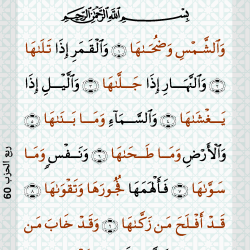 بِسْمِ اللَّهِ الرَّحْمَٰنِ الرَّحِيمِ
وَالشَّمْسِ وَضُحَىٰهَا ١ وَالْقَمَرِ إِذَا تَلَىٰهَا
٢ وَالنَّهَارِ إِذَا جَلَّىٰهَا ٣ وَاللَّيْلِ إِذَا
يَغْشَىٰهَا ٤ وَالسَّمَآءِ وَمَا بَنَىٰهَا ٥
وَالْأَرْضِ وَمَا طَحَىٰهَا ٦ وَنَفْسٍ وَمَا
سَوَّىٰهَا ٧ فَأَلْهَمَهَا فُجُورَهَا وَتَقْوَىٰهَا ٨
قَدْ أَفْلَحَ مَن زَكَّىٰهَا ٩ وَقَدْ خَابَ مَن
ربع الحزب 60